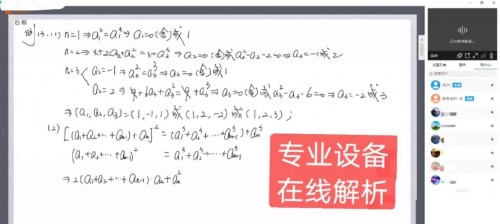 例 (1) n=1 ⇒ a₁²=a₁³ ⇒ a₁=0(舍)或 1
n=2 ⇒ 1+2a₂+a₂²=1+a₂³ ⇒ a₂=0(舍)或 a₂²-a₂-2=0 ⇒ a₂=-1或2
n=3 { a₂=-1 ⇒ a₃²=a₃³ ⇒ a₃=0(舍)或1
a₂=2 ⇒ ⇒ a₃=0(舍)或 a₃²-a₃-6=0 ⇒ a₃=-2或3
⇒ (a₁,a₂,a₃)=(1,-1,1)或(1,2,-2)或(1,2,3);
(2) [(a₁+a₂+…+aₙ₋₁)+aₙ]²=(a₁³+a₂³+…+aₙ₋₁³)+aₙ³
(a₁+a₂+…+aₙ₋₁)² = a₁³+a₂³+…+aₙ₋₁³
⇒ 2(a₁+a₂+…+aₙ₋₁)·aₙ+aₙ²
专业设备
在线解析